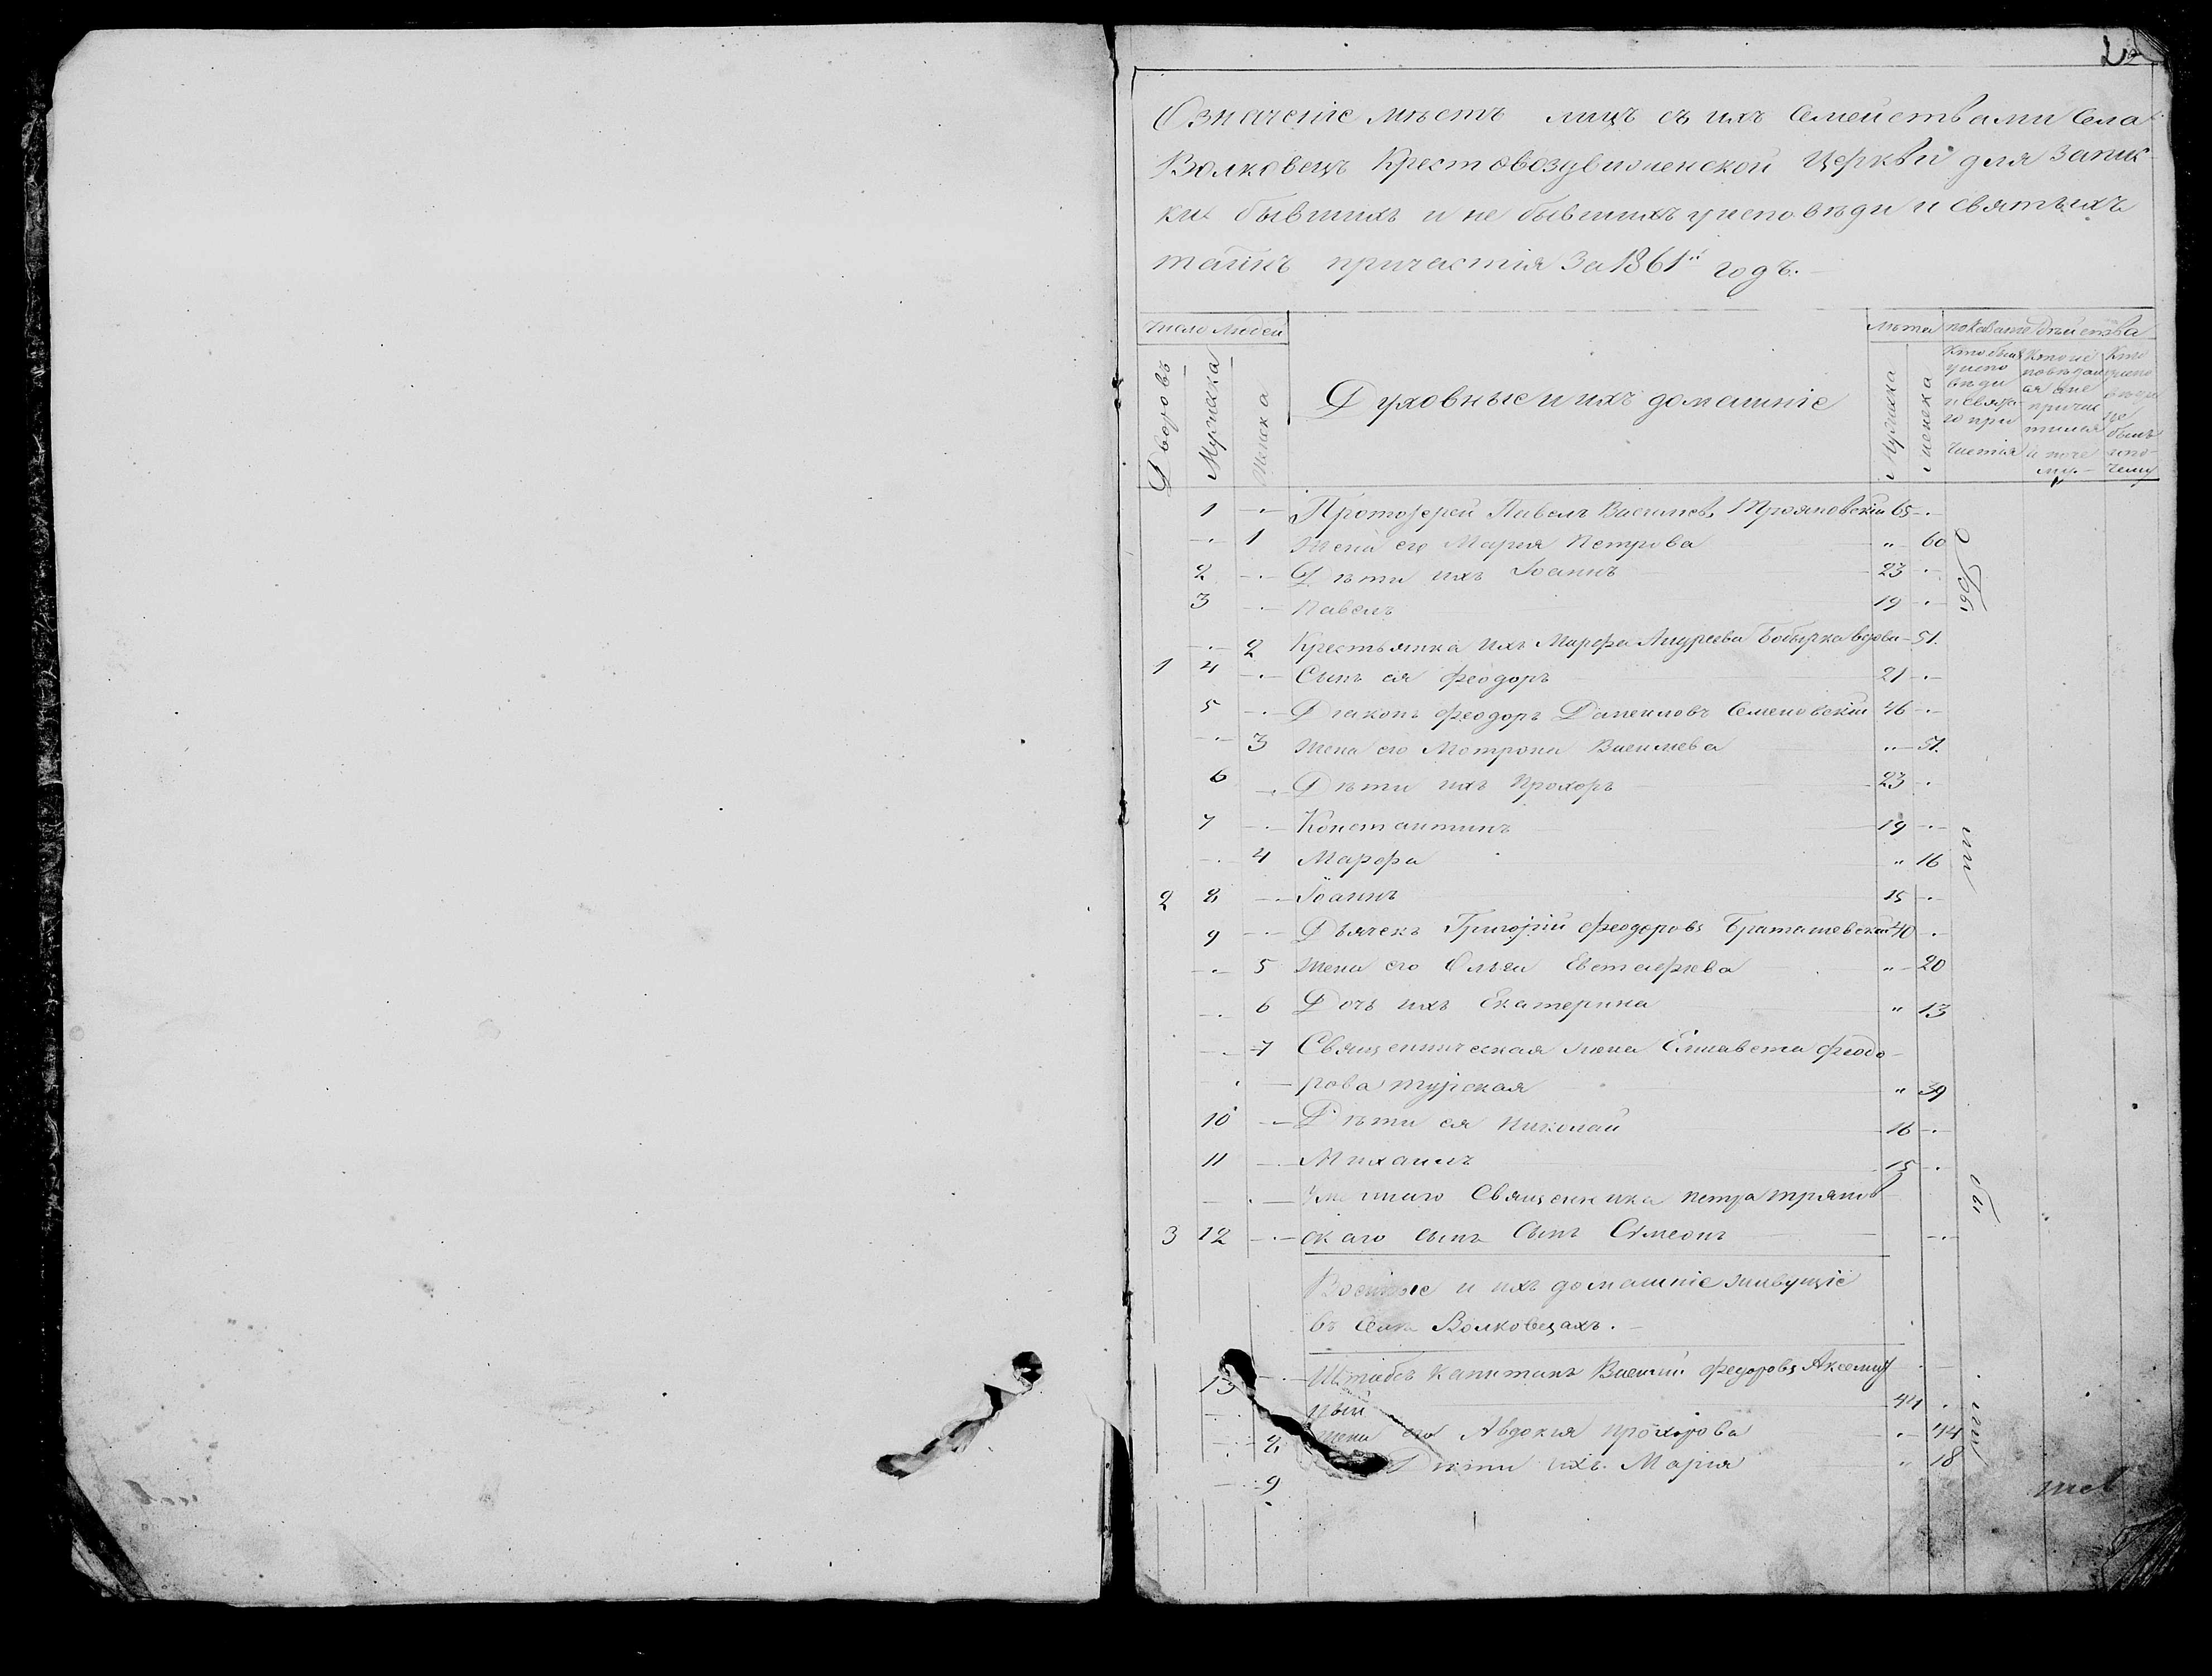 2
Означеніе мѣстъ лицъ съ ихъ семействами Села
Волковецъ Крестовоздвиженской Церкви для запис
ки бывшихъ и не бывшихъ уисповѣди и святыхъ
таинъ причастія За 1861й годъ.
Число людей
Лѣта
показаніе действа
Дворовъ
Мужеска
Женска
Духовные и ихъ домашніе
Мужеска
Женска
Кто былъ
уиспо
вѣди
и свята
го при
частія
причас
тился
и поче
му.
Кто
уиспо
не
былъ
ипо-
чему
1 Протоіерей Павелъ Василіевъ Трояновскій 65
1 Жена его Марія Петрова " 60
2 Дѣти ихъ Іоаннъ 23
3 Павелъ 19
2 Крестьянка ихъ Марфа Андреева вдова 51.
1 4 Сынъ ея Феодоръ 21
5 Діаконъ Феодоръ Даниловъ Семеновскій 46
3 Жена его Мотрона Василіева " 51.
6 Дѣти ихъ Прохоръ 23
7 Константинъ 19
4 Марфа " 16
2 8 Іоаннъ 15
9 Дьячекъ Григорій Феодоровъ Браташевскій 40
5 Жена его Ольга " 20
6 Дочь ихъ Екатерина " 13
7 Священническая жена Елисавета Феодо-
рова Турская " 39
10 Дѣти ея Николай 16
11 Михаилъ 15
Священника Петра
3 12 скаго сынъ Сынъ Сімеонъ
Военные и ихъ домашніе живущіе
въ Селѣ Волковцахъ.
13 Штабсъ Капитанъ Василій Федоровъ
ный 44
8 Жена его Авдокія Прохорова 44
9 Дѣти ихъ Марія " 18